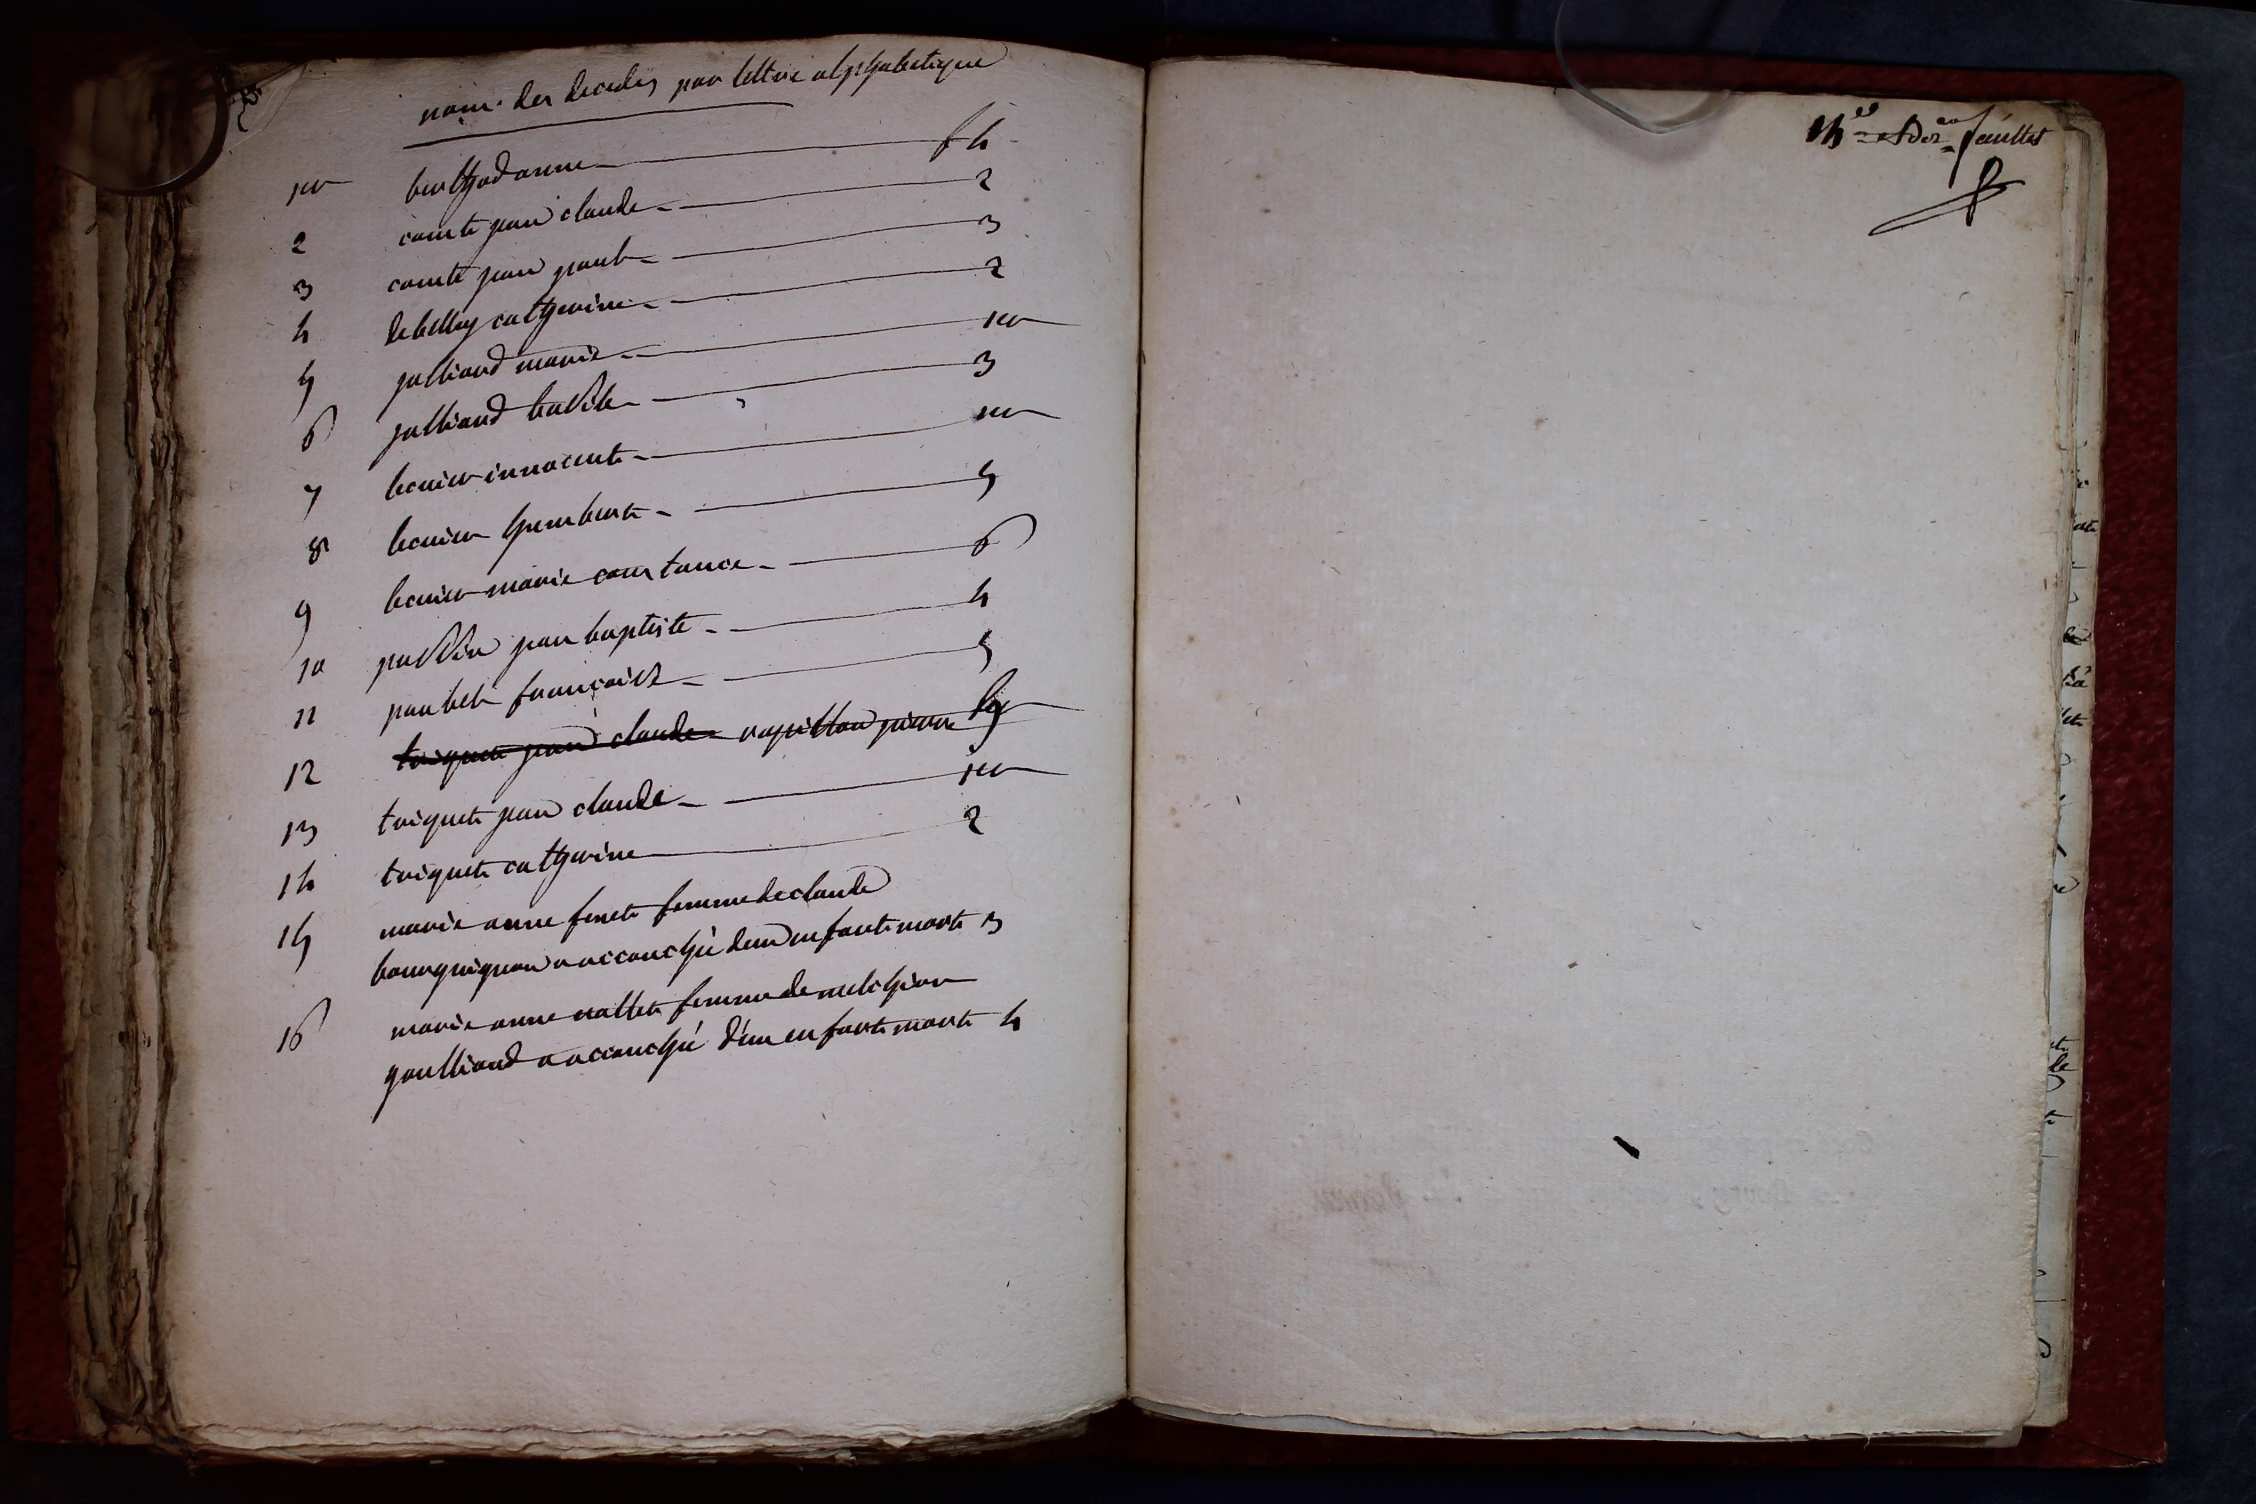 noms des decedes par lettre alphabetique
1er berthod anne f 4
2 comte jean claude 2
3 comte jean paul 3
4 debelley catherine 2
5 julliand marie 1er
6 julliand basile 3
7 lenier innocente 1er
8 lenier humberte 5
9 lenier marie constance 6
10 passin jean baptiste 4
11 paubele francoise 5
12 triquet jean claude rapillion pierre
13 triquet jean claude 1er
14 triquet catherine 2
15 marie anne fenet femme de claude
bourguignon a accouché d'un enfant mort 3
16 marie anne nallet femme de melchior
goulliand a accouché d'un enfant mort 4
feuillet